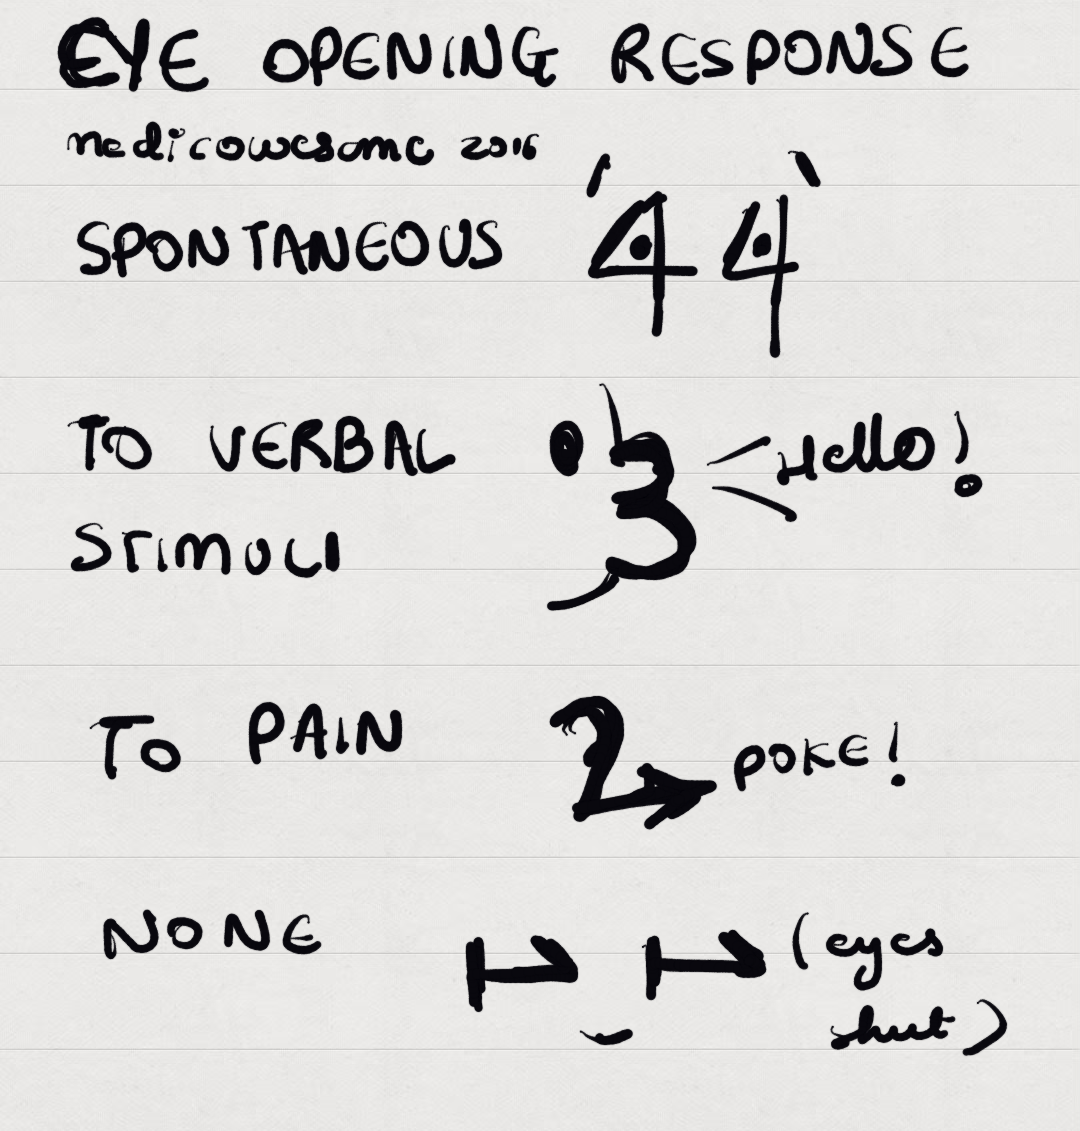 EYE OPENING RESPONSE
medicowesome 2016
SPONTANEOUS 4 4
TO VERBAL 3 Hello!
STIMULI
TO PAIN 2 POKE!
NONE 1 1 (eyes
shut)